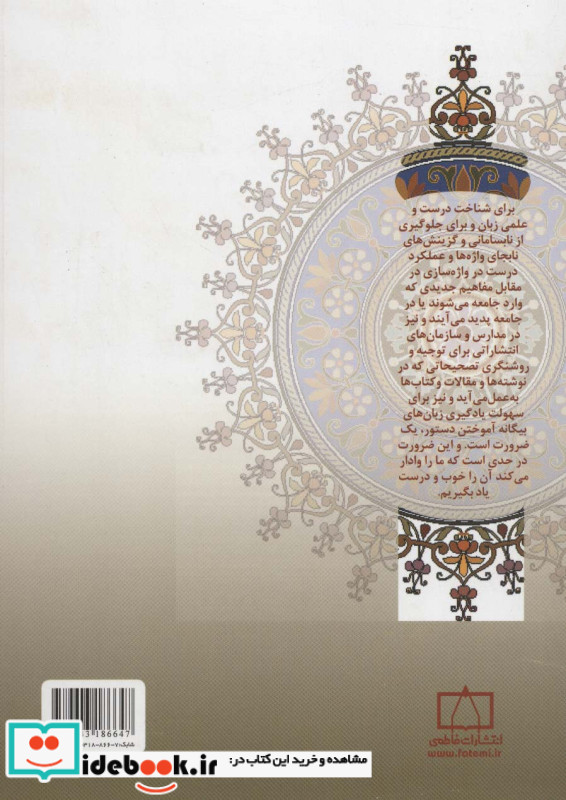 برای شناخت درست و
علمی زبان و برای جلوگیری
از نابسامانی و گزینش‌های
نابجای واژه‌ها و عملکرد
درست در واژه‌سازی در
مقابل مفاهیم جدیدی که
وارد جامعه می‌شوند یا در
جامعه پدید می‌آیند و نیز
در مدارس و سازمان‌های
انتشاراتی برای توجیه و
روشنگری تصحیحاتی که در
نوشته‌ها و مقالات و کتاب‌ها
به‌عمل می‌آید و نیز برای
سهولت یادگیری زبان‌های
بیگانه آموختن دستور، یک
ضرورت است. و این ضرورت
در حدی است که ما را وادار
می‌کند آن را خوب و درست
یاد بگیریم.
انتشارات فاطمی
www.fatemi.ir
186647
۳۱۸-۸۶۶-۷
مشاهده و خرید این کتاب در:
idebook.ir